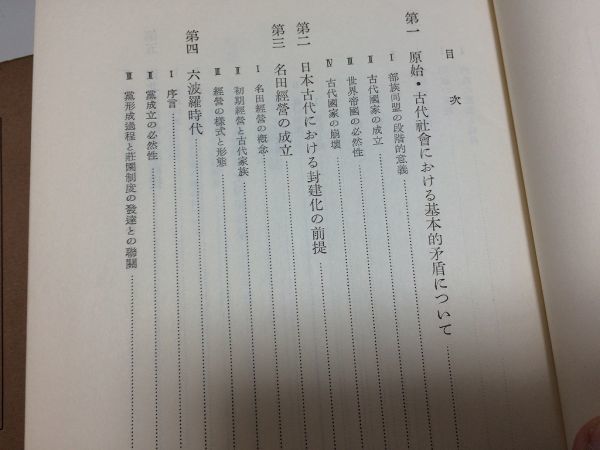 目次
第一 原始・古代社會における基本的矛盾について
Ⅰ 部族同盟の段階的意義
Ⅱ 古代國家の成立
Ⅲ 世界帝國の必然性
Ⅳ 古代國家の崩壞
第二 日本古代における封建化の前提
第三 名田經營の成立
Ⅰ 名田經營の概念
Ⅱ 初期經營と古代家族
Ⅲ 經營の樣式と形態
第四 六波羅時代
Ⅰ 序言
Ⅱ 黨成立の必然性
Ⅲ 黨形成過程と莊園制度の發達との聯關